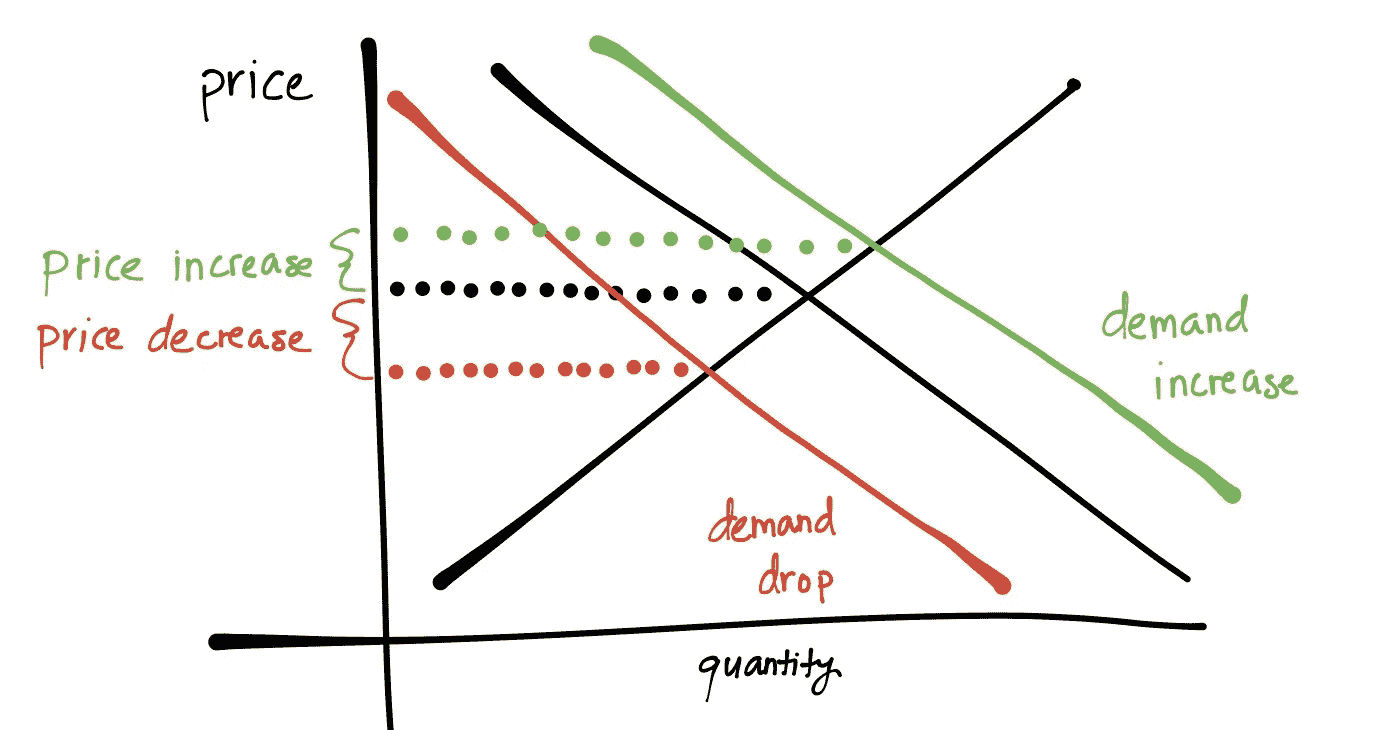 price
price increase
price decrease
demand
increase
demand
drop
quantity